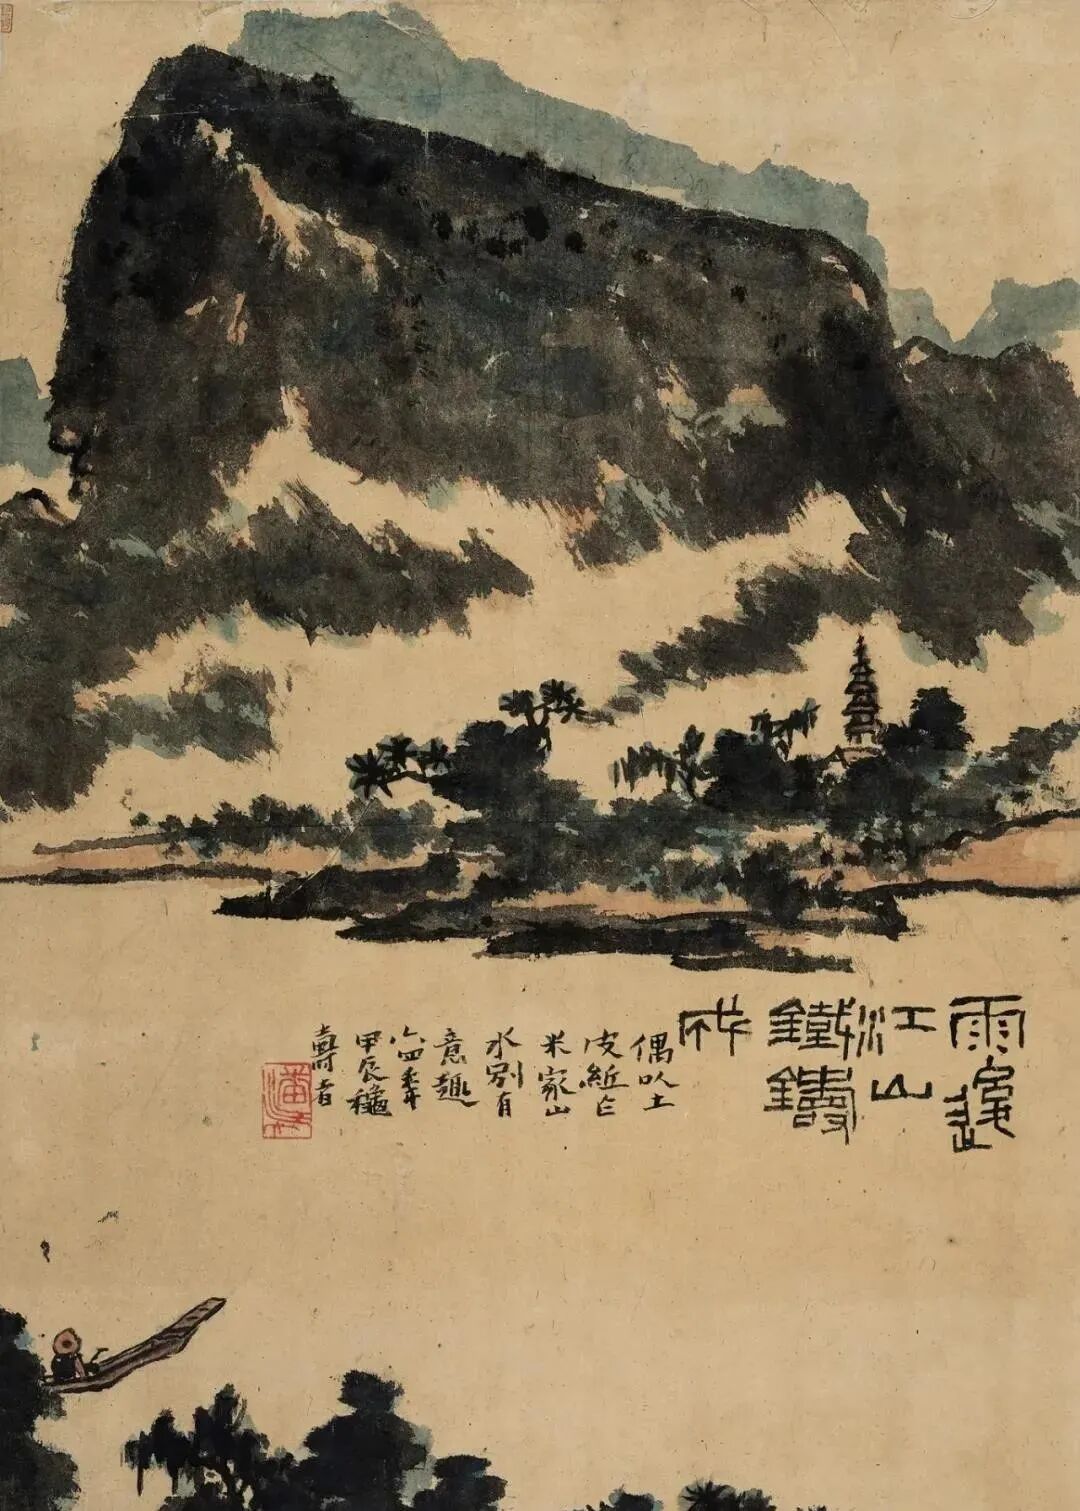 雨後
江山
鐵鑄
成
偶以土
皮紙乍
米家山
水別有
意趣
六四秊
甲辰龝
壽者